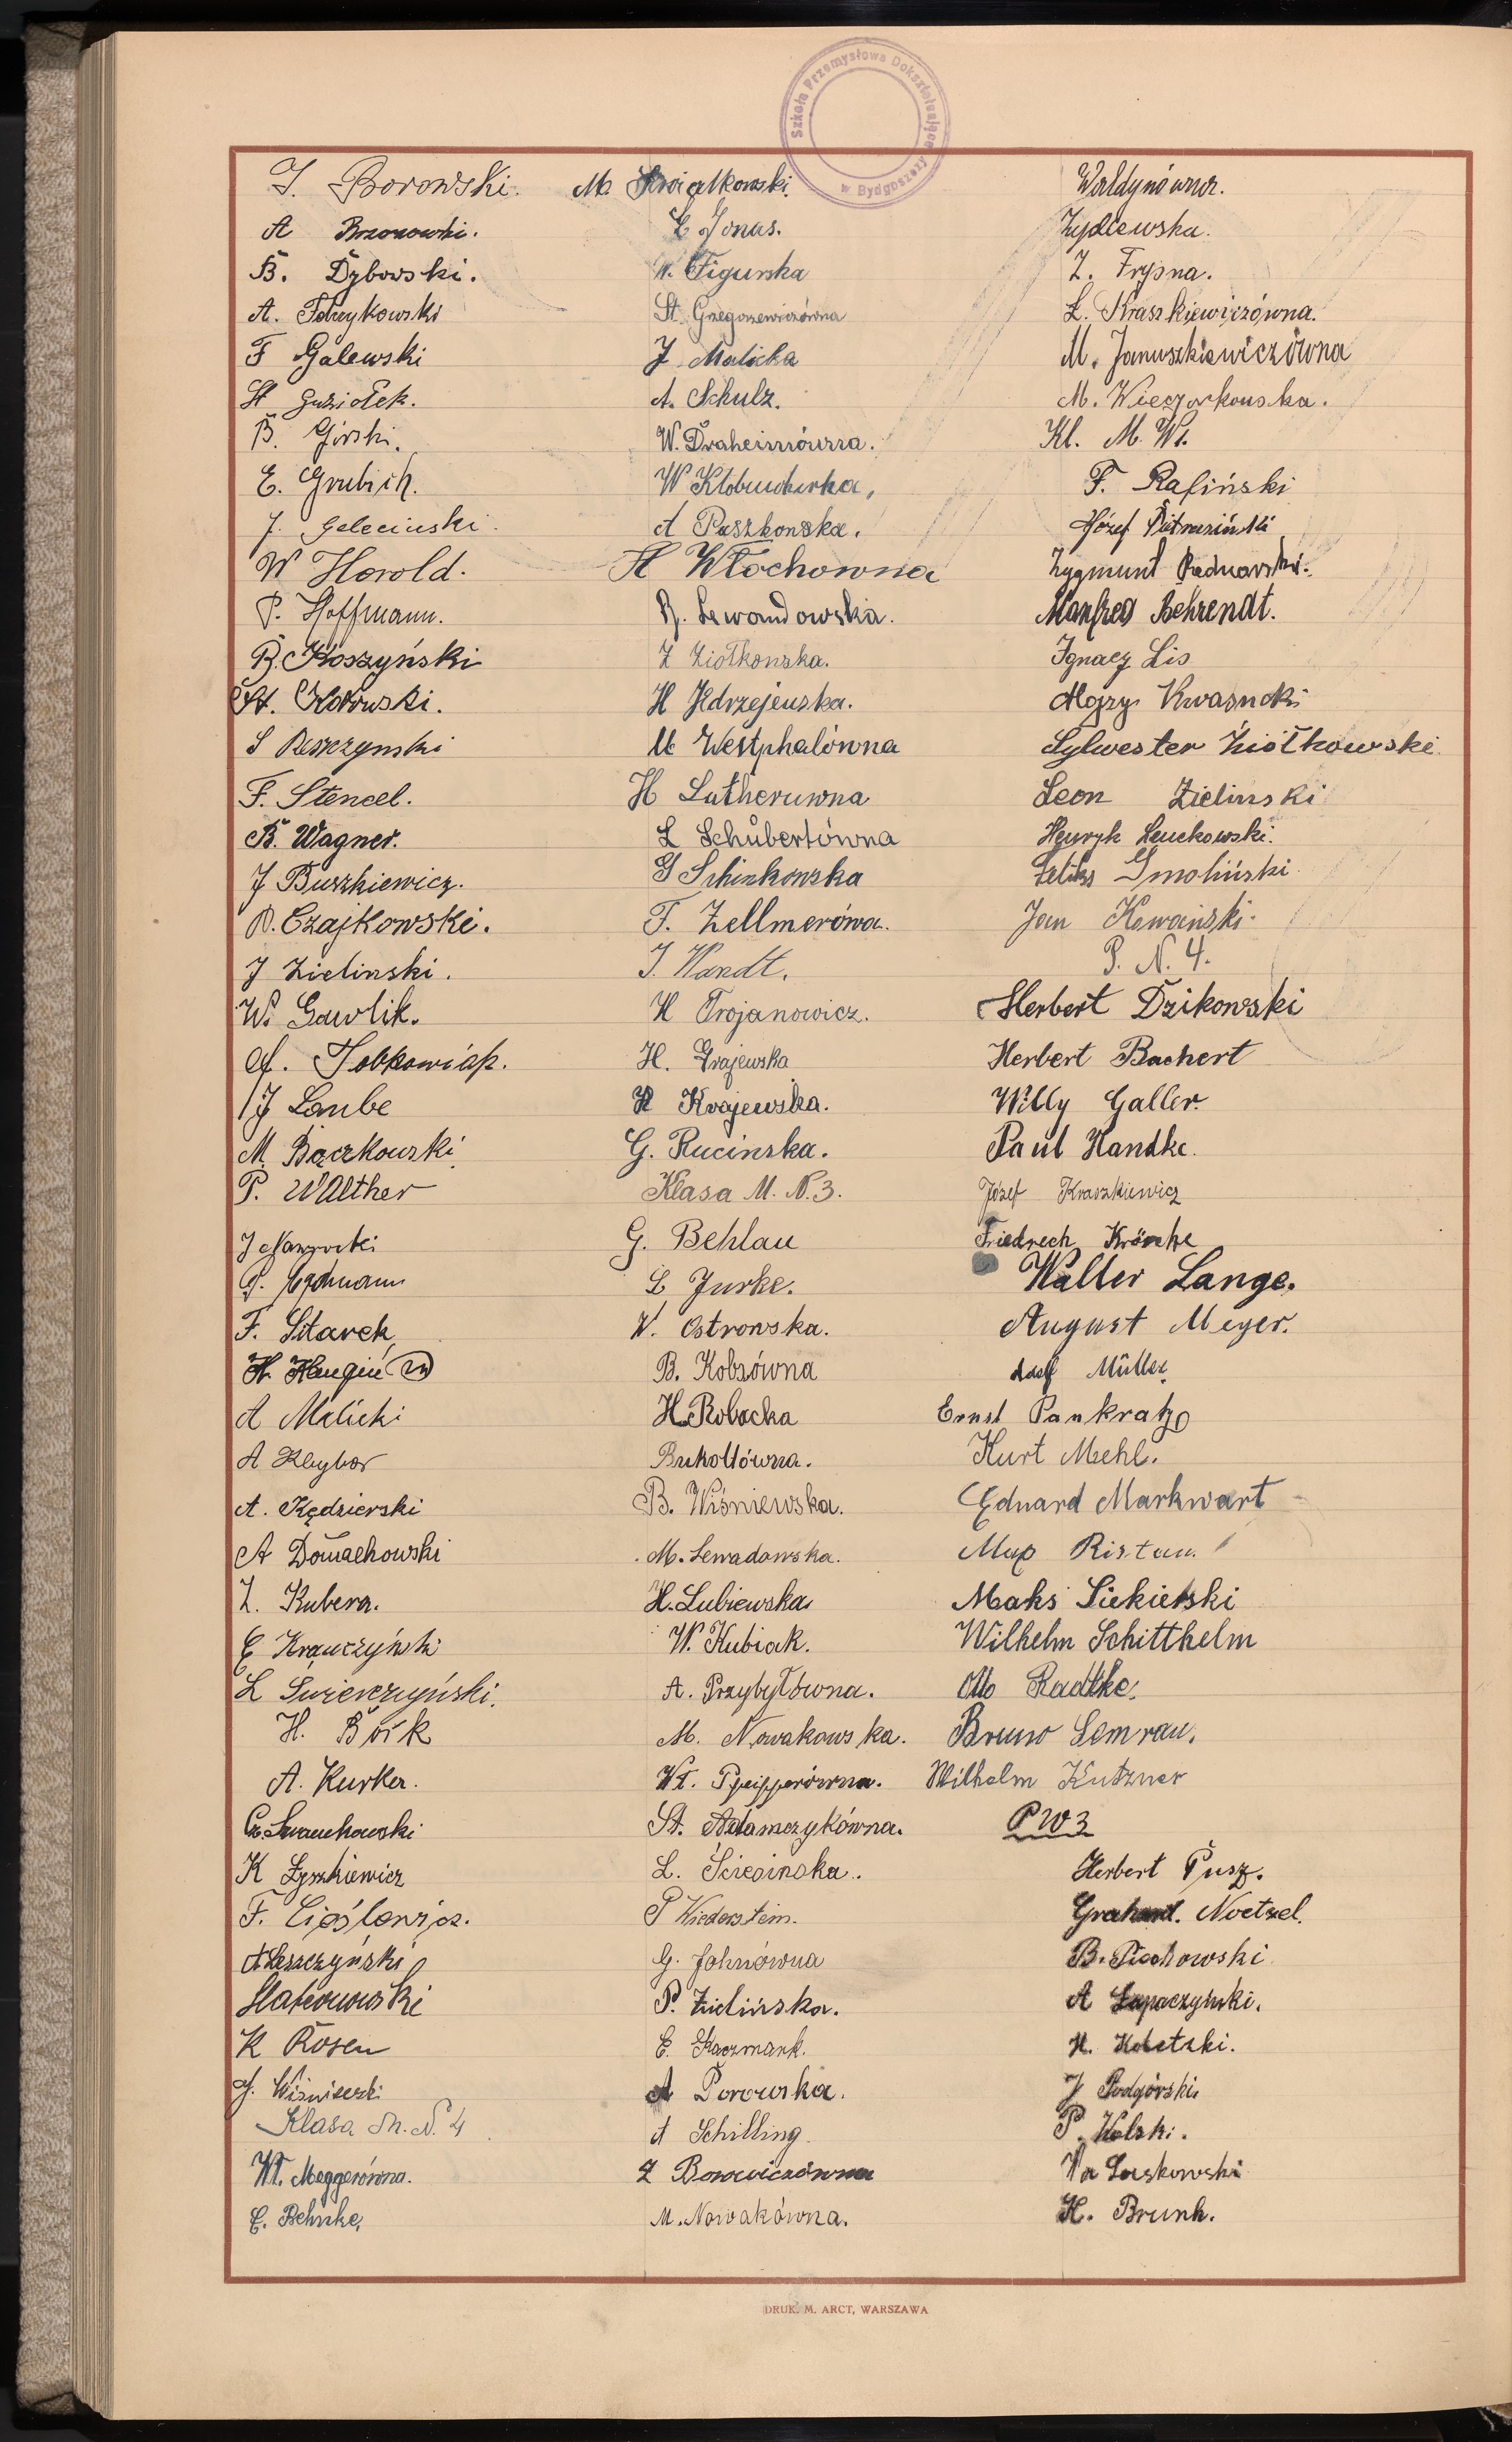 Szkoła Przemysłowa Dokształcająca
w Bydgoszczy
J. Borowski.
A Brzozowski.
B. Dybowski.
A.
F Galewski
St Guziołek.
B. Górski.
E. Grubich.
J. Galeciuski.
W Herold.
P. Hoffmann.
B. Koszyński
St. Kotowski.
S Reszzynski
F. Stencel.
B. Wagner.
J Buszkiewicz.
B. Czajkowski.
J Zielinski.
W. Gawlik.
J Laube
M. Bączkowski
P. Walther
J Nawrocki
F. Sitarek
A Malicki
A Kleybor
A. Kędzierski
A Domachowski
Z. Kubera.
E Krawczyński
L Świerczyński.
H. Bóik
A. Kurker.
K Łyszkiewicz
F. Cieślewicz.
A Leszczyński
K Rosen
J. Wiśniewski
Klasa M. N. 4
Wł. Meggerówna.
E. Behnke.
M. Kwiatkowski.
E Jonas.
W. Figurska
St. Grzegorzewiczówna
J Malicka
A. Schulz.
W. Draheimówna.
W Kłobucharka.
A Paszkowska.
H Włochowna
R. Lewandowska.
Z Ziołkowska.
H Jędrzejewska.
M Westphalówna
H Lutheruwna
L Schübertówna
G Schinkowska
F. Zellmerówa.
J. Wandt.
H Trojanowicz.
H. Grajewska
H Krajewska.
G. Rucinska.
Klasa M. N. 3.
G. Behlau
L Jurke.
W. Ostrowska.
B. Kobsówna
H. Robacka
Bukołtówna.
B. Wiśniewska.
M. Lewadowska.
H. Lubiewska
W. Kubiak.
A. Przybyłówna.
M. Nowakowska.
Wł. Pfeifferówna.
St. Adamczykówna.
L. Ścieginska.
P Wiederstein.
G. Jahnówna
P. Zielińska.
E. Kaczmark.
A Borowska.
A Schilling.
Z Borowiczówna
M. Nowakówna.
Waldynówna.
Zydlewska.
Z. Frysna.
Ł. Kraszkiewiczówna.
M. Januszkiewiczówna
M. Wieczorkowska.
Kl. M. W1.
F. Rafiński
Józef Pietrasiński
Zygmunt Bednarski.
Manfred Behrendt.
Ignacy Lis
Alojzy Kwasnoki
Sylwester Ziółkowski
Leon Zielinski
Henryk Lenckowski.
Feliks Smoliński
Jan Kowański.
P. N. 4.
Herbert Dzikowski
Herbert Bachert
Willy Galler.
Paul Handke.
Józef Kraszkiewicz
Friedrech Krönke
Walter Lange.
August Meyer.
Adolf Müller
Ernst Pankratz
Kurt Mehl.
Eduard Markwart
Max Ristau.
Maks Siekierski
Wilhelm Schitthelm
Otto Radtke.
Bruno Semrau.
Wilhelm Kutzner
P W 3
Herbert Pusz.
Noetzel.
B. Piechowski
A Łapaczyński.
H. Kobetzki.
J Podgórski
P. Kolski.
Wa Laskowski
H. Brunk.
DRUK. M. ARCT, WARSZAWA